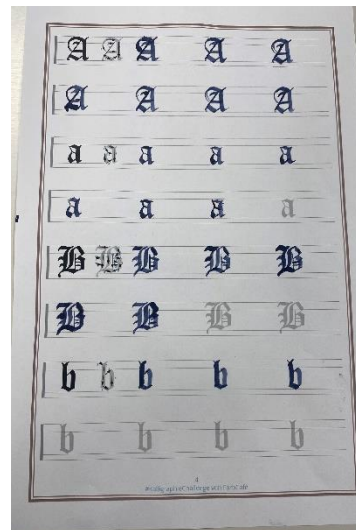 A A A A A
A A A A
a a a a a
a a a a
B B B B B
B B B B
b b b b b
b b b b
4